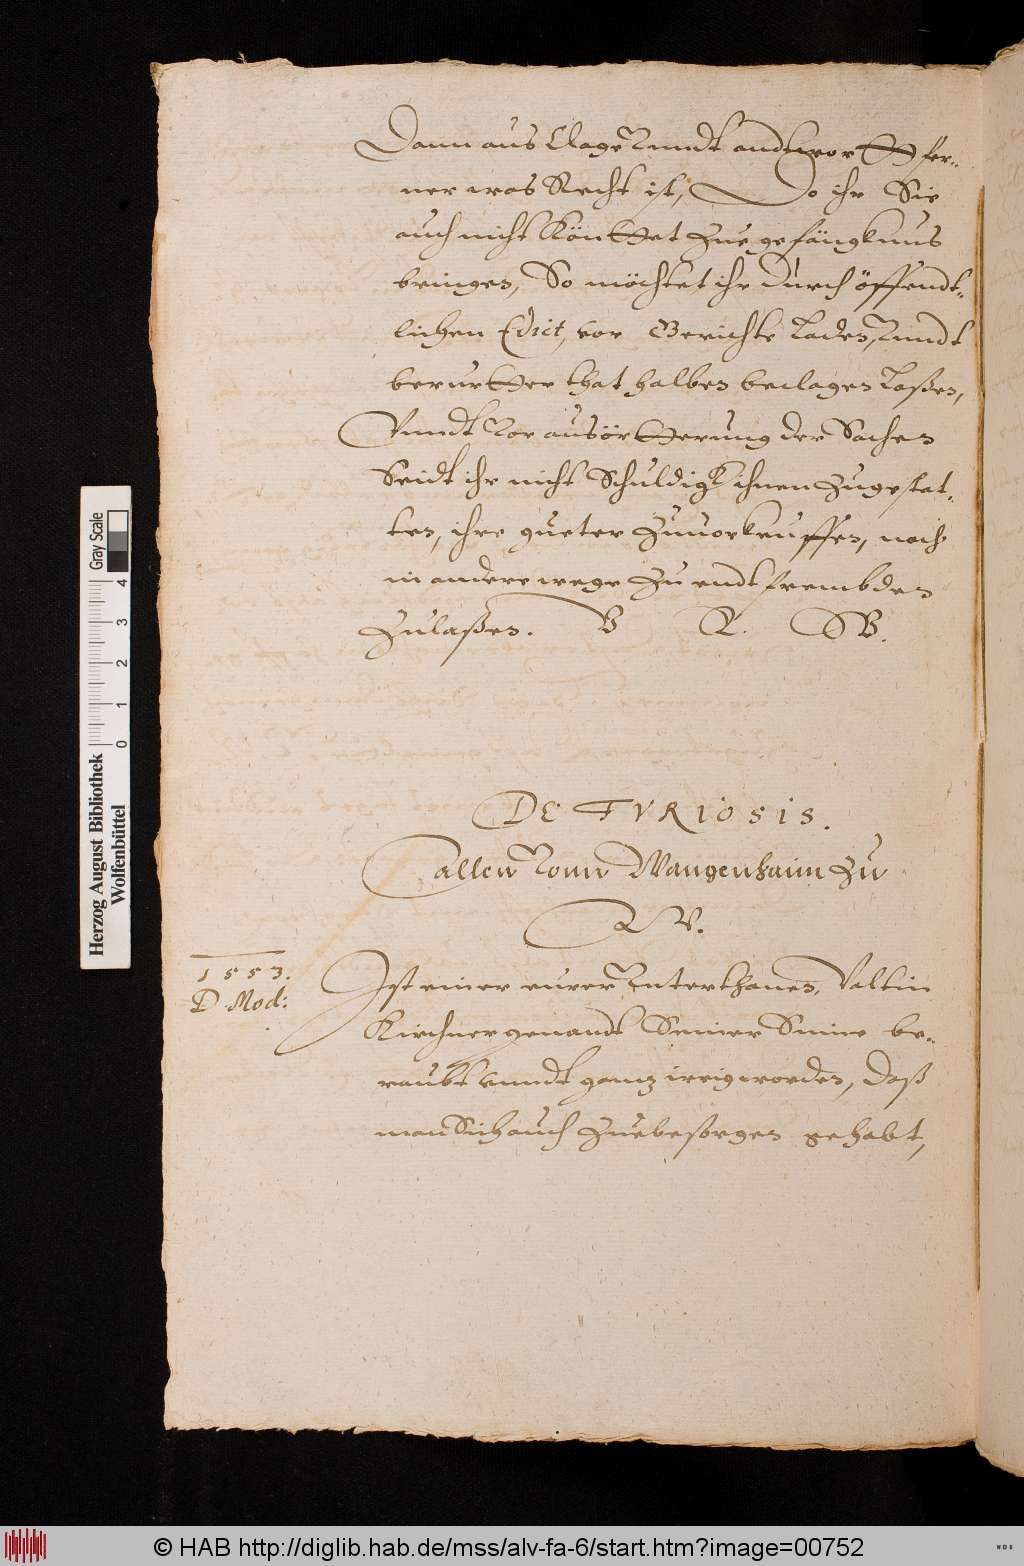 Dann aus Clage Vnndt andtwortt fer-
ner was Recht ist, Do ihr Sie
auch nicht Könttet Zue gefängknus
bringen, So möchtet ihr durch öffendt-
lichen Edict, vor Gerichte Laden, Vnndt
berurtter that halben beclagen Laßen,
Vnndt Vor ausörtterung der Sachen
Seidt ihr nicht Schuldig ihnen Zugestat-
ten, ihre gueter Zuuorkeuffen, noch
in andere wege Zu endtfrembden
Zulaßen. V R. W.
DE FVRIOSIS.
allen Vonn Wangenhaim Zu
W.
1553.
D. Mod:
Ist einer eurer Vnterthanen, Valtin
Kirchner genandt Seiner Sinne be-
raubt vnndt ganz irrig worden, daß
man Sich auch Zuebesorgen gehabt,
Herzog August Bibliothek
Wolfenbüttel
0 1 2 3 4
Gray Scale
© HAB http://diglib.hab.de/mss/alv-fa-6/start.htm?image=00752
WDB